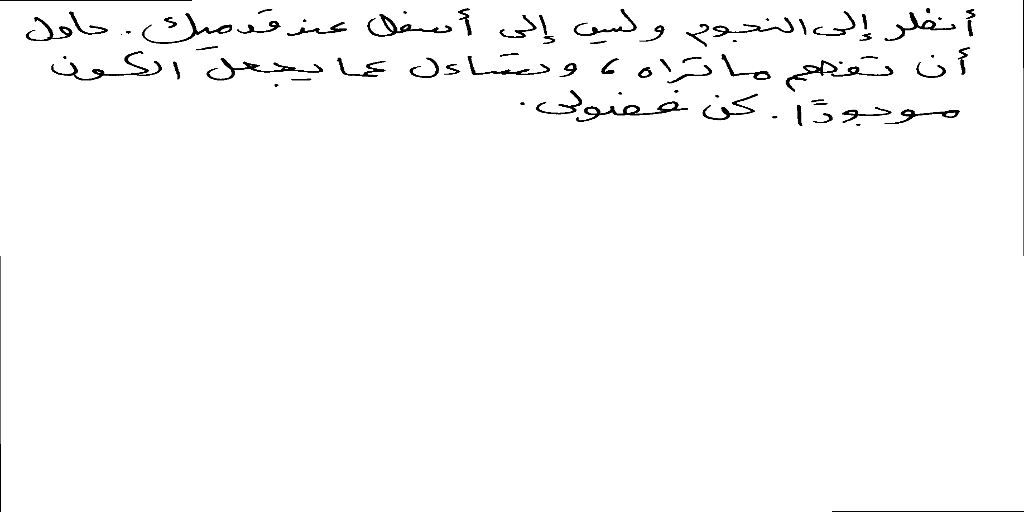 أنظر إلى النجوم وليس إلى أسفل عند قدميك. حاول
أن تفهم ما تراه، وتتساءل عما يجعل الكون
موجودًا. كن فضولى.